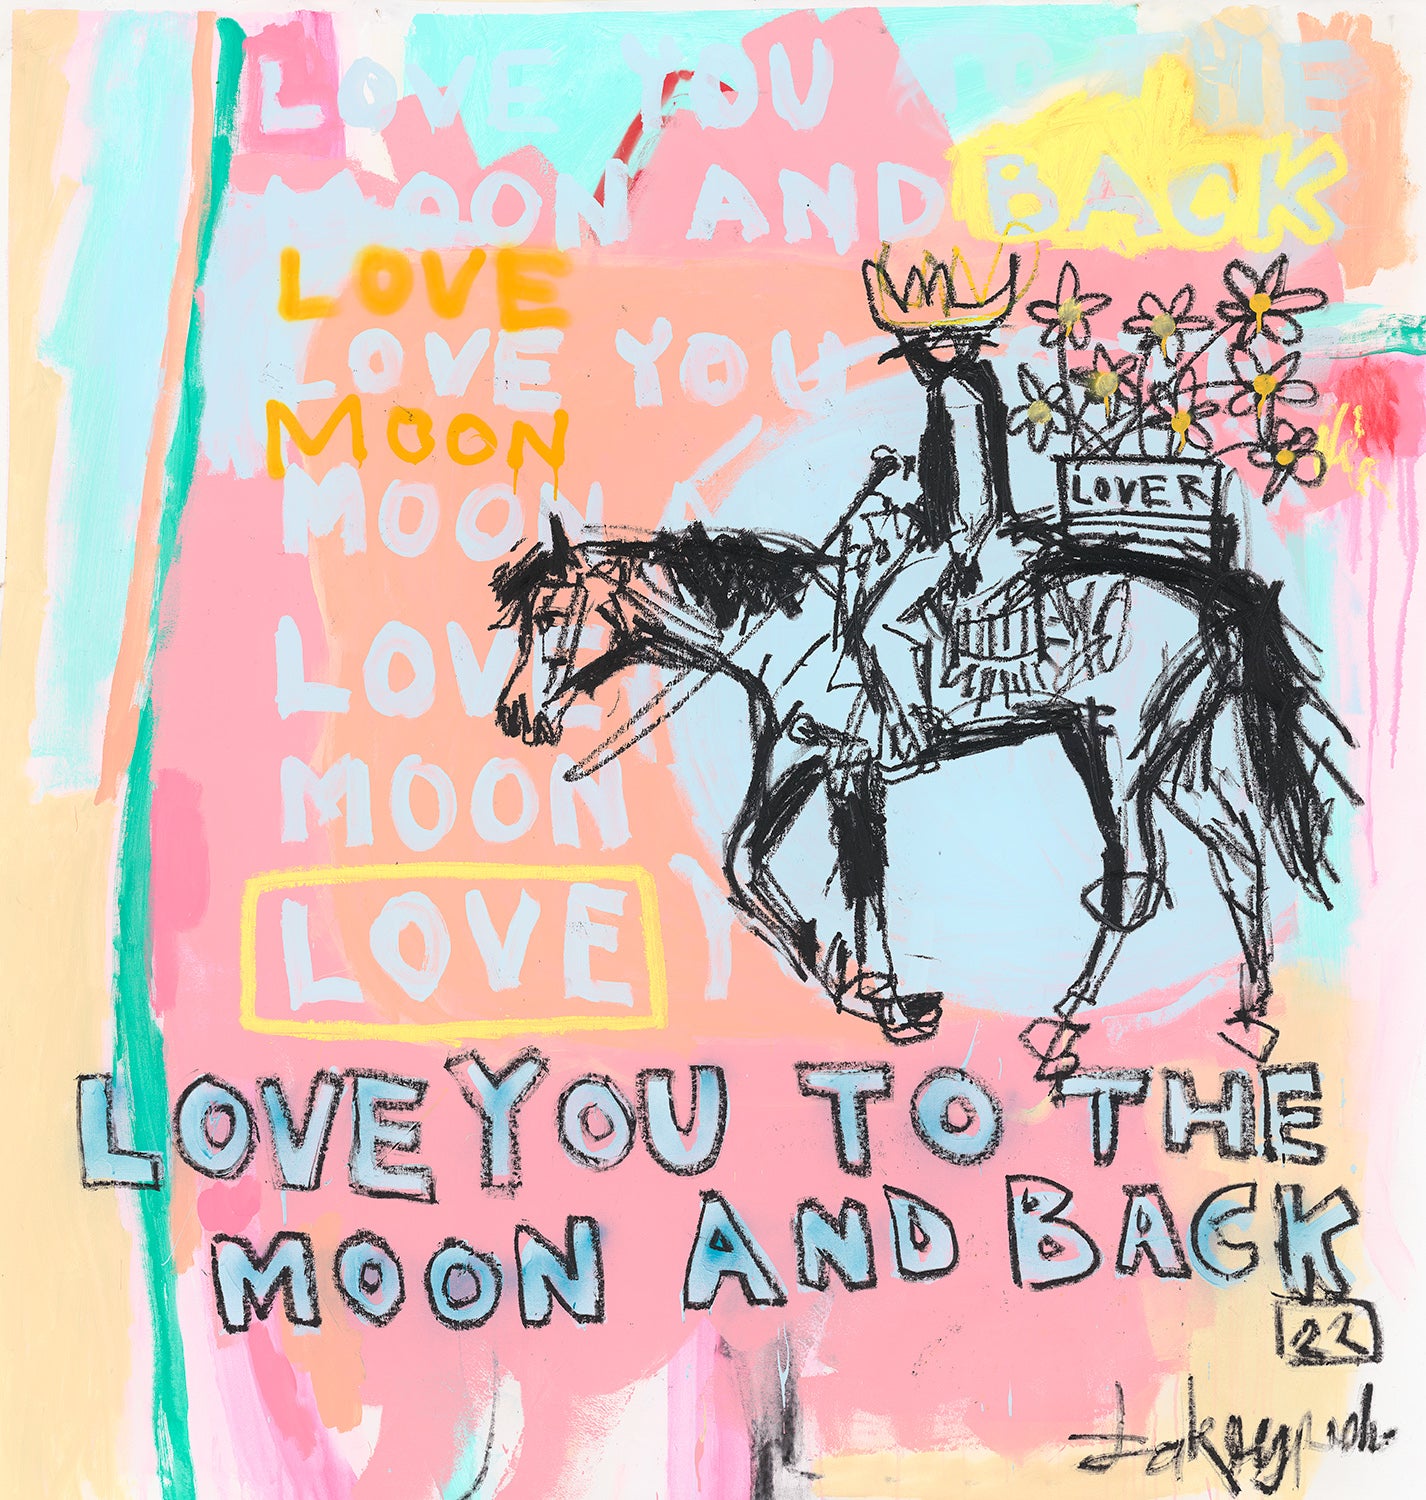 LOVE YOU TO THE
MOON AND BACK
LOVE
LOVE YOU
MOON
MOON A
LOVER
LOVE
MOON
LOVE Y
LOVE YOU TO THE
MOON AND BACK
22